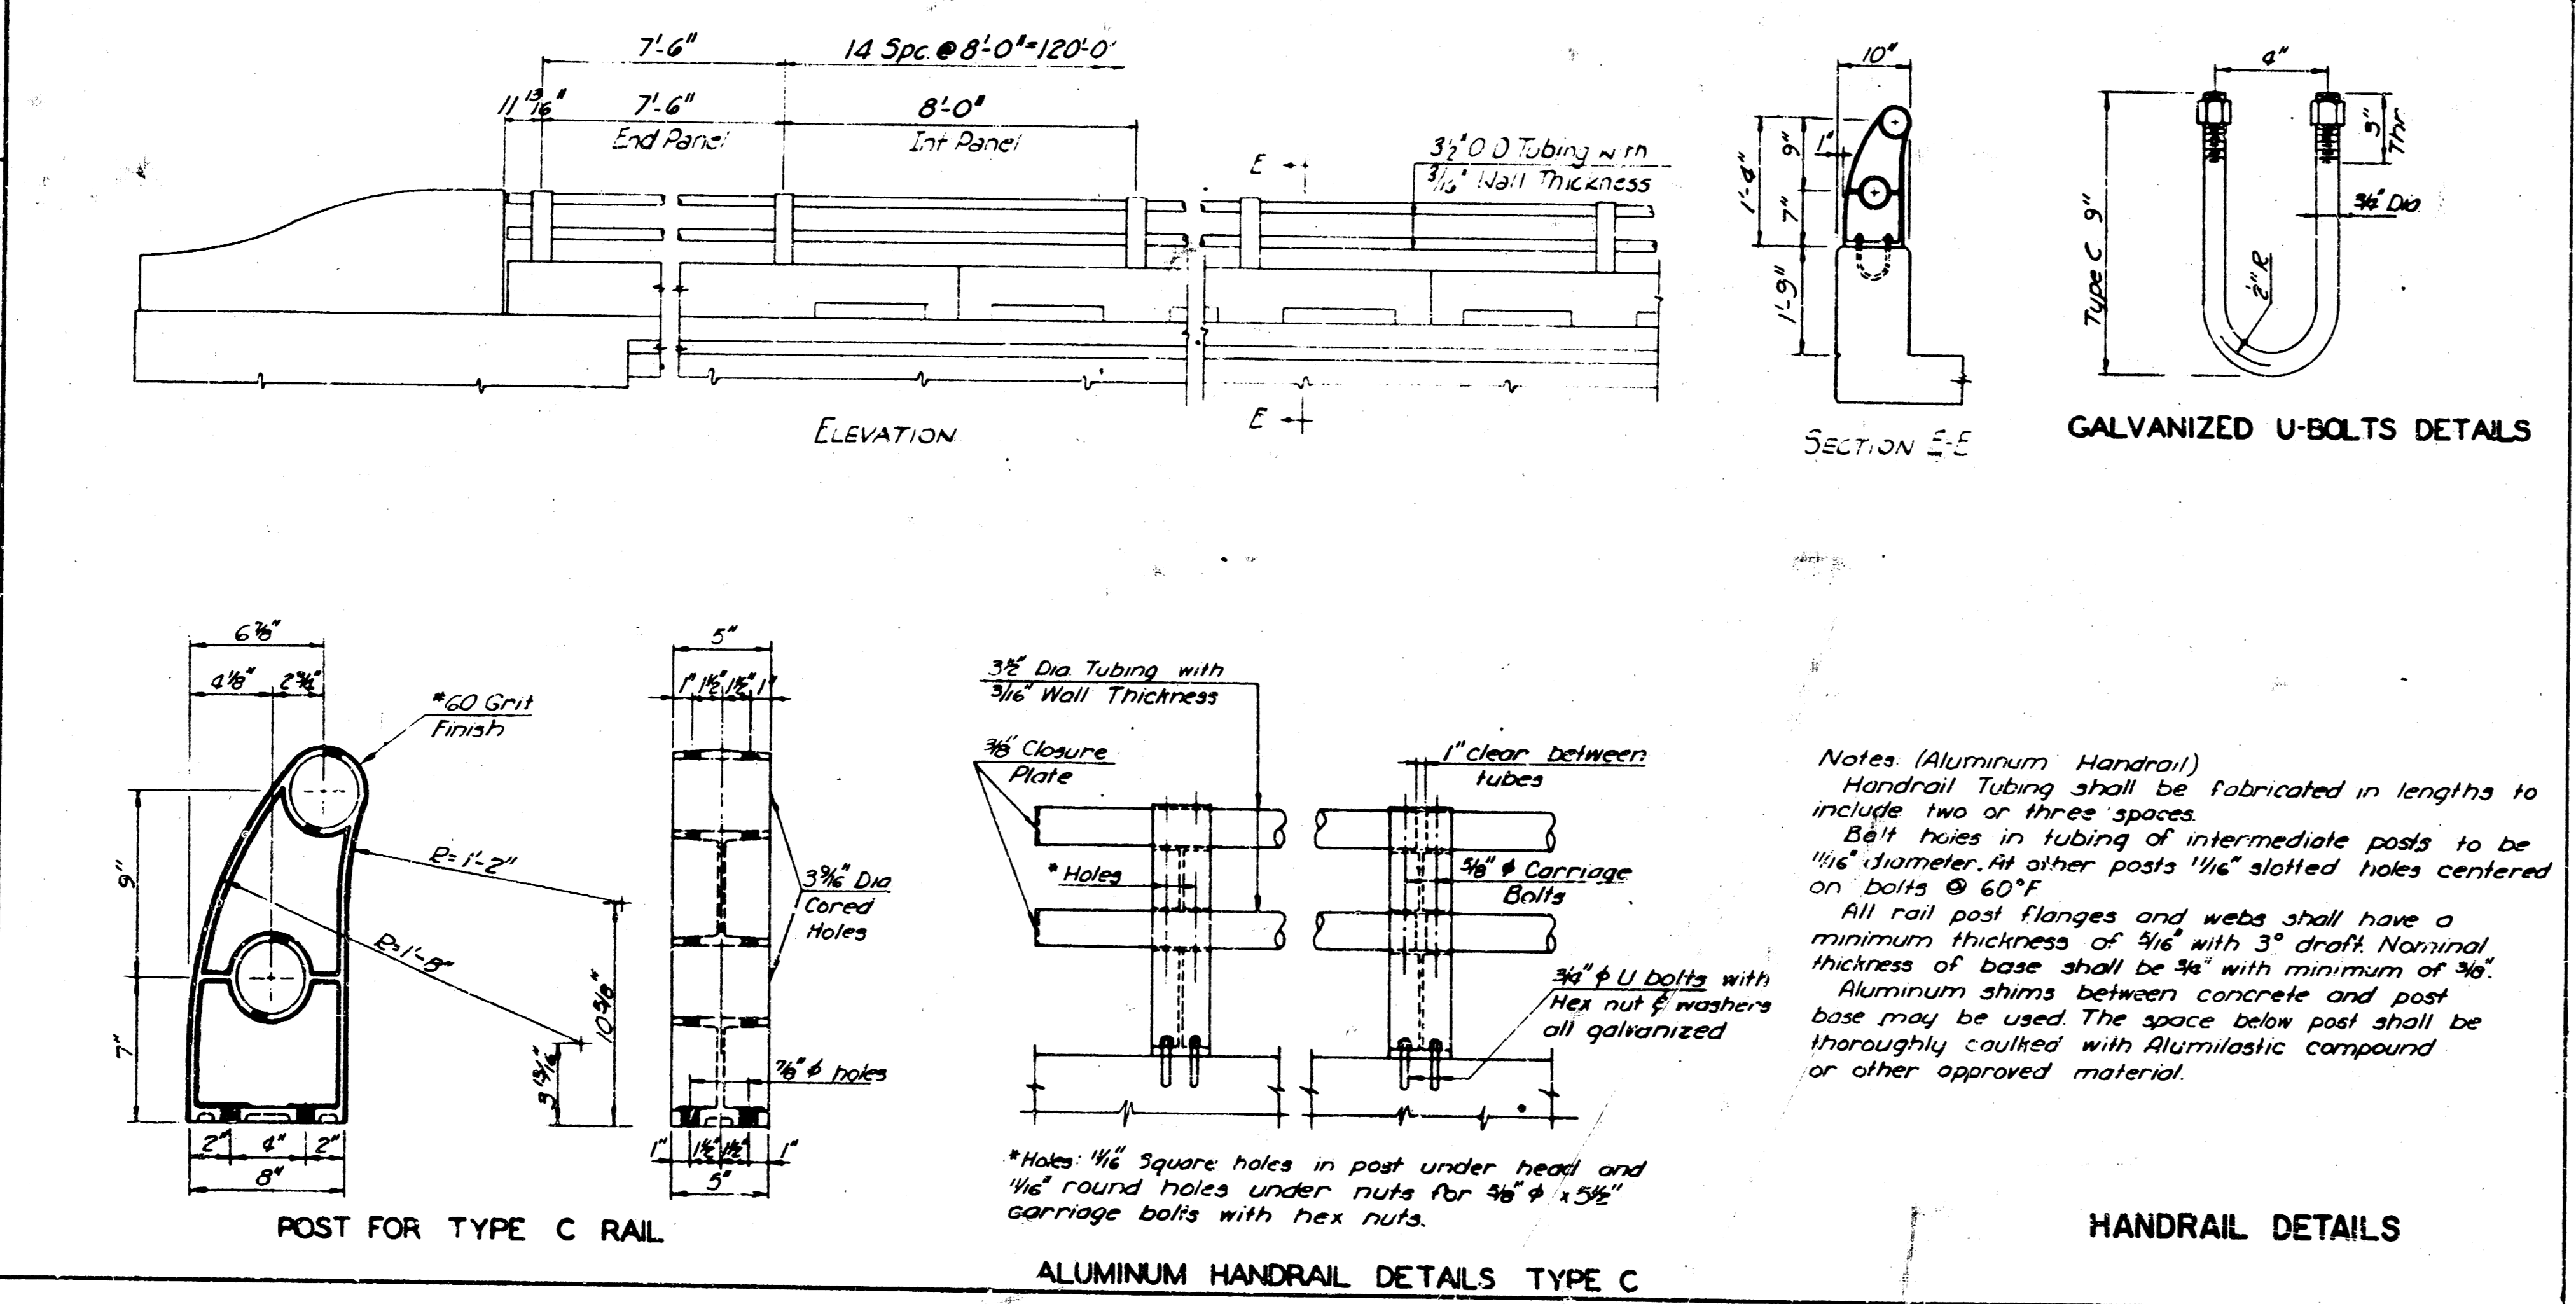 7'-6"
14 Spc. @ 8'-0"=120'-0"
11 13/16"
7'-6"
End Panel
8'-0"
Int Panel
E
3½" O D Tubing with
3/16" Wall Thickness
E
ELEVATION
10"
1'-4"
9"
1"
7"
1'-9"
SECTION E-E
4"
3"
Thr
Type C 9"
¾" Dia.
½" R
GALVANIZED U-BOLTS DETAILS
6⅞"
4⅛"
2¾"
#60 Grit
Finish
R=1'-2"
9"
R=1'-8"
10 5/8"
7"
3 13/16"
2"
4"
2"
8"
POST FOR TYPE C RAIL
5"
1"
1½"
1½"
1"
3 9/16" Dia
Cored
Holes
7/8" ϕ holes
1"
1½"
1½"
1"
5"
3½" Dia. Tubing with
3/16" Wall Thickness
3/8" Closure
Plate
1" clear between
tubes
*Holes
5/8" ϕ Carriage
Bolts
3/4" ϕ U bolts with
Hex nut & washers
all galvanized
*Holes: 11/16" Square holes in post under head and
11/16" round holes under nuts for 5/8" ϕ x 5½"
carriage bolts with hex nuts.
ALUMINUM HANDRAIL DETAILS TYPE C
Notes: (Aluminum Handrail)
Handrail Tubing shall be fabricated in lengths to
include two or three spaces.
Bolt holes in tubing of intermediate posts to be
11/16" diameter. At other posts 11/16" slotted holes centered
on bolts @ 60°F
All rail post flanges and webs shall have a
minimum thickness of 5/16" with 3° draft. Nominal
thickness of base shall be 3/4" with minimum of 5/8".
Aluminum shims between concrete and post
base may be used. The space below post shall be
thoroughly caulked with Alumilastic compound
or other approved material.
HANDRAIL DETAILS